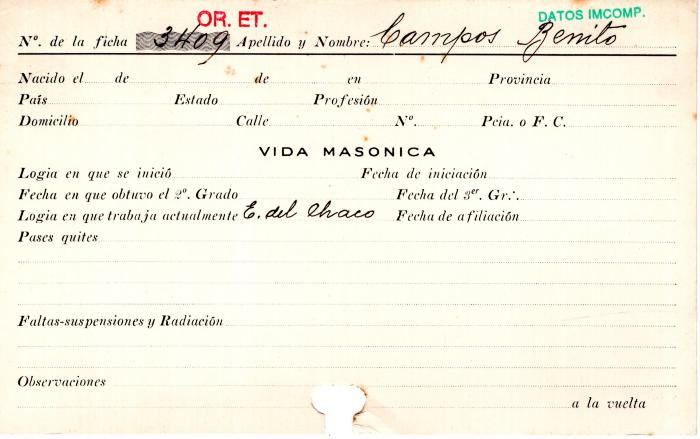 OR. ET.
DATOS IMCOMP.
Nº. de la ficha 3409 Apellido y Nombre: Campos Benito
Nacido el de de en Provincia
País Estado Profesión
Domicilio Calle Nº. Pcia. o F. C.
VIDA MASONICA
Logia en que se inició Fecha de iniciación
Fecha en que obtuvo el 2º. Grado Fecha del 3er. Gr∴
Logia en que trabaja actualmente E. del Chaco Fecha de afiliación
Pases quites
Faltas-suspensiones y Radiación
Observaciones
a la vuelta